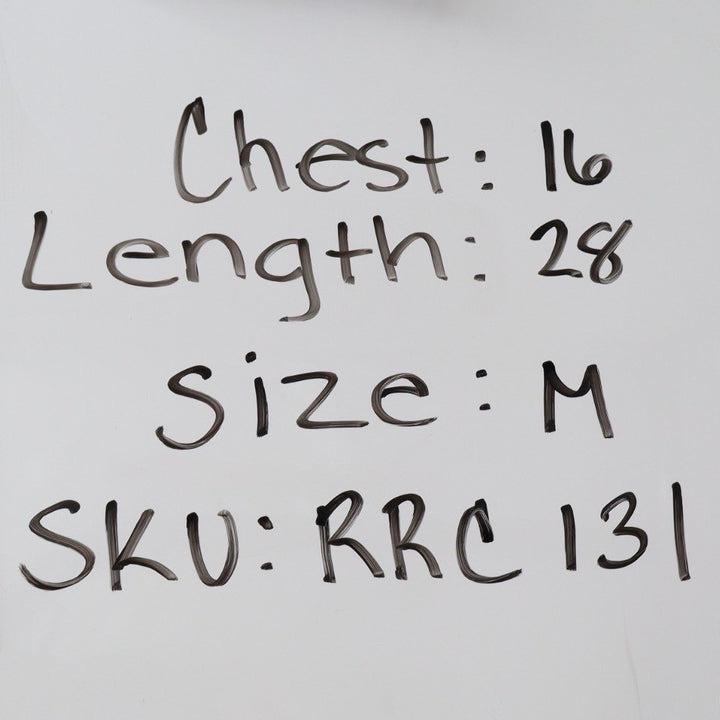 Chest: 16
Length: 28
Size: M
SKU: RRC 131